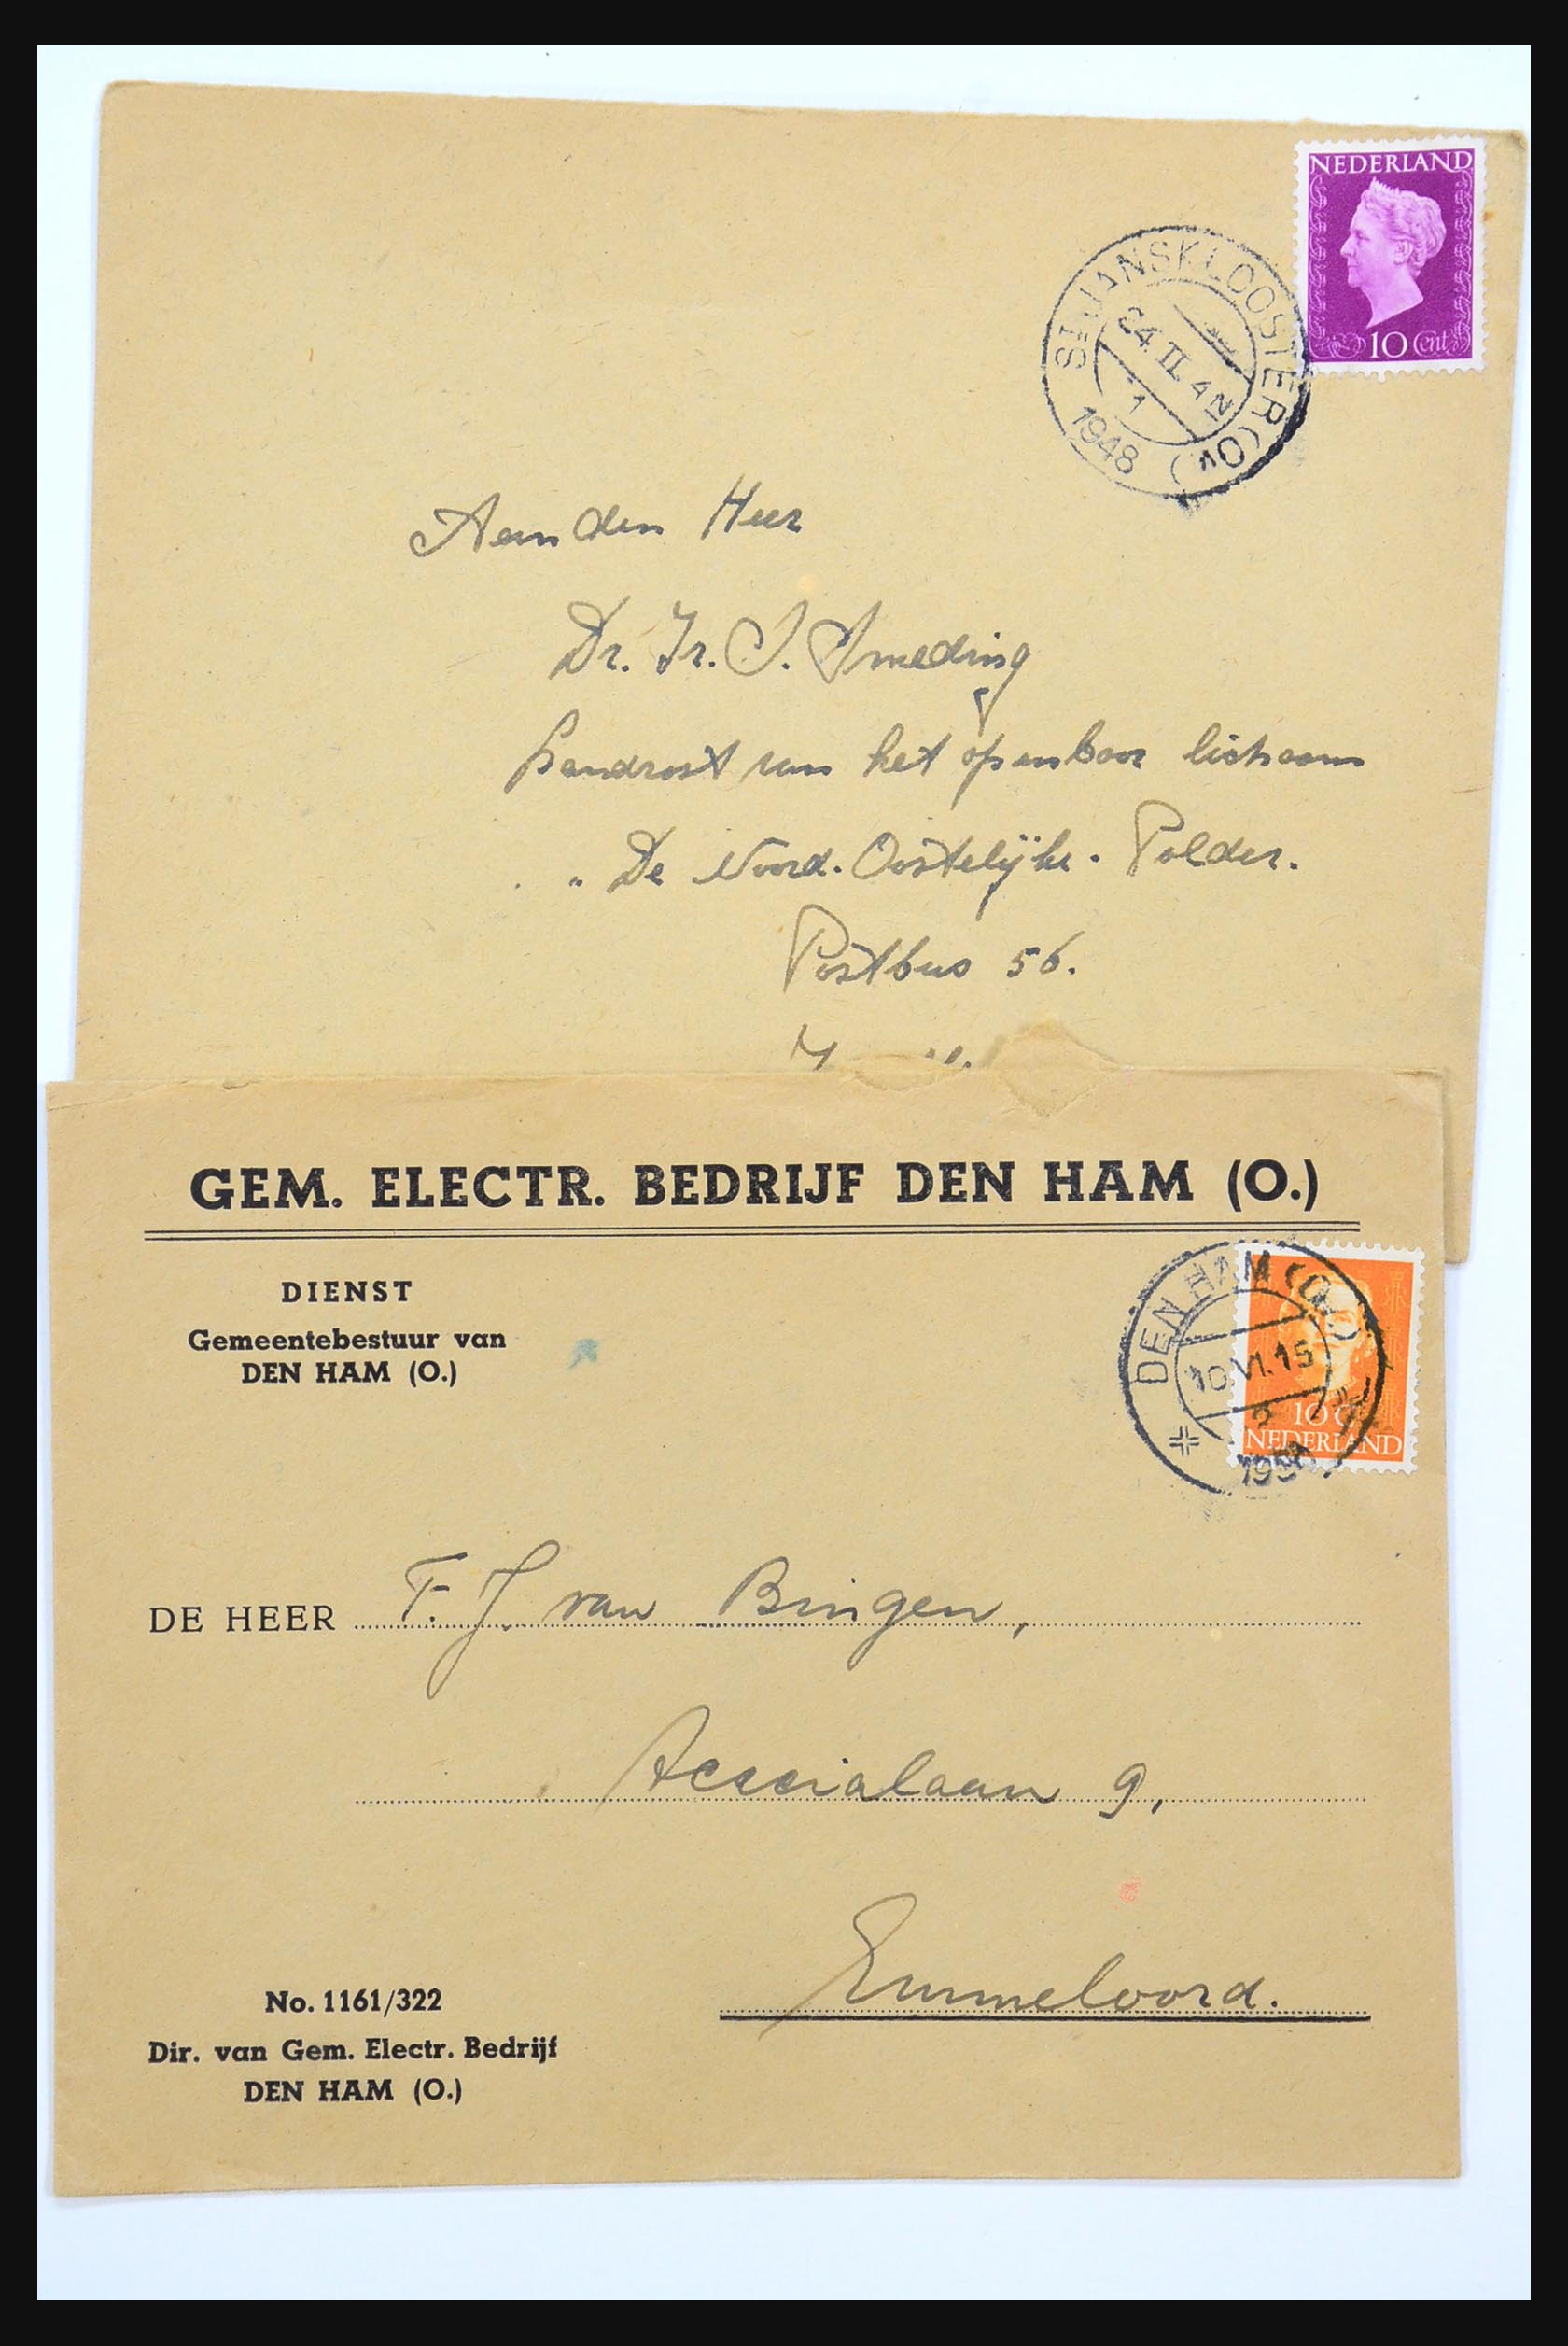 NEDERLAND
10 Cent
St JANSKLOOSTER (O)
24.II.4N
1
1948
Aan den Heer
Dr. Ir. S. Smeding
Landrost van het openbaar lichaam
„ De Noord. Oostelijke. Polder.
Postbus 56.
GEM. ELECTR. BEDRIJF DEN HAM (O.)
DIENST
Gemeentebestuur van
DEN HAM (O.)
DEN HAM (O.)
10.VI.15
10 C
NEDERLAND
DE HEER F. J. van Bingen,
Acaccialaan 9,
Emmeloord.
No. 1161/322
Dir. van Gem. Electr. Bedrijf
DEN HAM (O.)